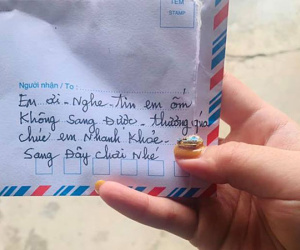 TEM
STAMP
Người nhận / To :
Em ơi - Nghe - tin em ốm
Không Sang Được - thương quá
chúc em Nhanh Khỏe -
Sang Đây chơi Nhé